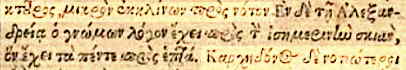 κτῦρος, μικρὸν ἐκκλίνων πρὸς νότον. Ἐν δὲ τῇ Ἀλεξαν-
δρείᾳ ὁ γνώμων λόγον ἔχει πρὸς τ̀ ἰσημερινὴν σκιὰν,
ὃν ἔχει τὰ πέντε πρὸς ἑπτά. Καρχηδόν<ος> δὲ νοτιώτεροί